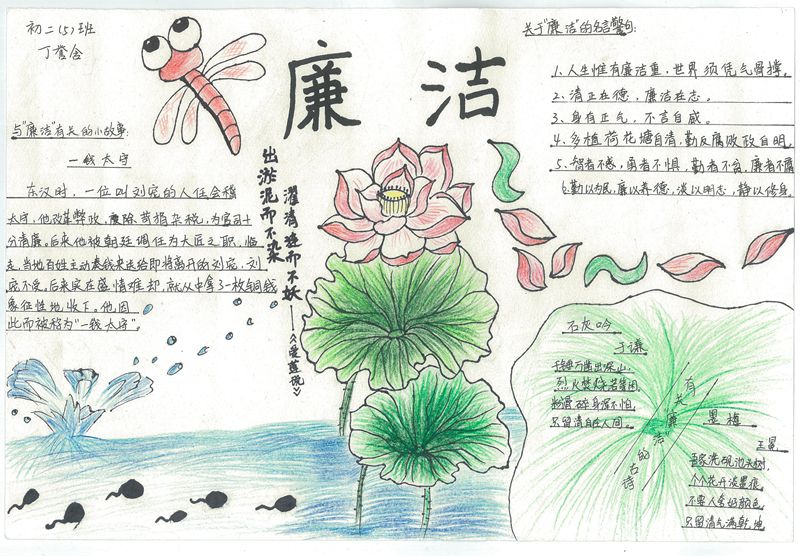 初二(5)班
丁誉舍
廉 洁
与"廉洁"有关的小故事:
一钱太守
东汉时,一位叫刘宠的人任会稽
太守,他改革弊政,废除苛捐杂税,为官司十
分清廉。后来他被朝廷调任为大匠之职,临
走,当地百姓主动凑钱来送给即将离开的刘宠,刘
宠不受。后来实在盛情难却,就从中拿了一枚铜钱
象征性地收下。他因
此而被称为"一钱太守"。
出淤泥而不染
濯清涟而不妖——《爱莲说》
关于"廉洁"的名言警句:
1、人生惟有廉洁重,世界须凭气骨撑。
2、清正在德,廉洁在志。
3、身有正气,不言自威。
4、多植荷花塘自清,勤反腐败政自明。
5、智者不惑,勇者不惧,勤者不贫,廉者不腐
6、勤以为民,廉以养德,淡以明志,静以修身
石灰吟
于谦
千锤万凿出深山,
烈火焚烧若等闲。
粉骨碎身浑不怕,
只留清白在人间。
有关"廉洁"的古诗
墨梅
王冕
吾家洗砚池头树,
个个花开淡墨痕。
不要人夸好颜色,
只留清气满乾坤